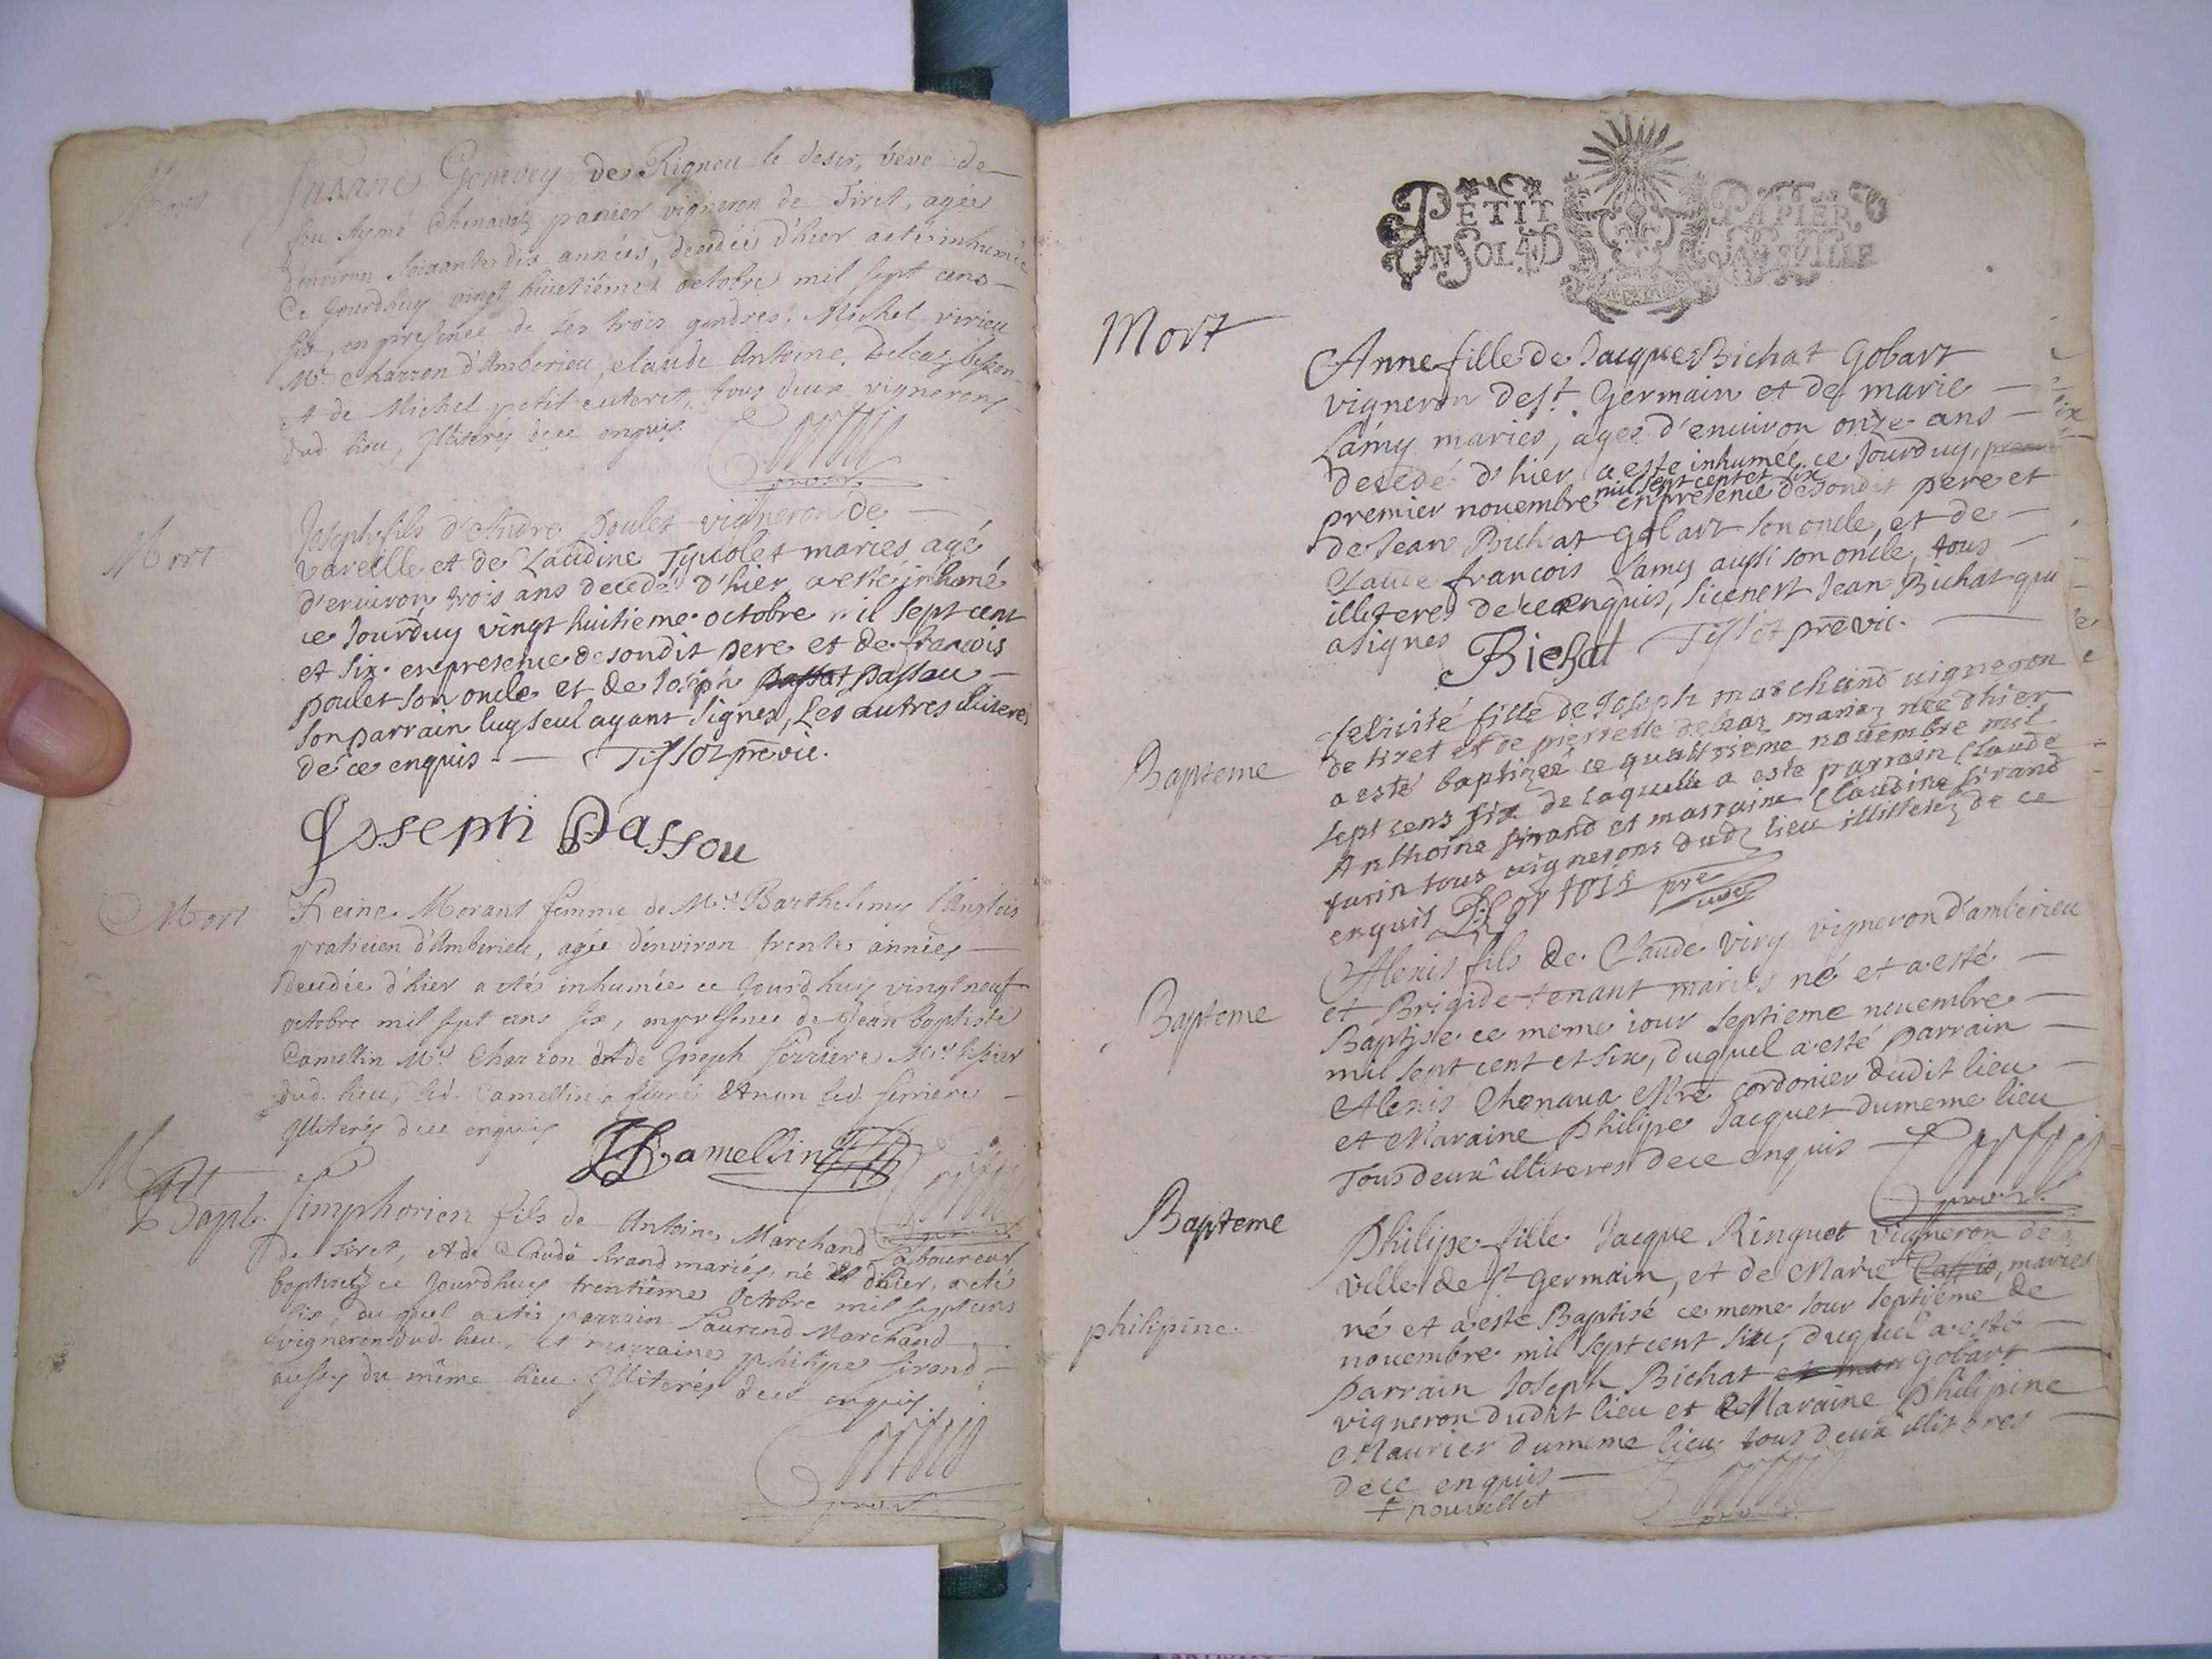 Mort
Susanne Genevey de Rigneu le deser, veve de
feu Aymé Chenavaz panier vigneron de Tiret, agée
denviron soixante dix années, decedée d'hier a eté inhumée
Ce Jourdhuy vingt huictiême octobre mil sept cens
six, en presence de ses trois gendres, Michel virieu
Mre charron d'Amberieu, claude Antoine
et de Michel petit tous deux vignerons
dud lieu, Illiterés de ce enquis.
Mort
Joseph fils d'Andre poulet vigneron de
vareille et de Claudine Tynolet maries agé
d'environ trois ans decedé d'hier a esté inhumé
ce Jourduy vingt huitieme octobre mil sept cent
et six. en presence de sondit pere et de francois
poulet son oncle et de Joseph passat passau
son parrain luy seul ayant signer, Les autres illiteres
de ce enquis. Tissot previc.
Joseph Passou
Mort
Reine Morant femme de Mre Barthelemy l'Anglois
praticien d'Amberieu, agée denviron trente années
decedée d'hier a eté inhumée ce Jourdhuy vingt neuf
octobre mil sept cens six, en presence de Jean baptiste
Camellin Mre Charron et de Joseph ferriere Mre
dud. lieu, led. Camellin a signé & non led ferriere
Illiterés de ce enquis
Camellin
Mort
Bapt.
Simphorien fils de Antoine Marchand laboureur
de Tiret, et de Claudâ sirand mariés, né d'hier, a eté
baptisé ce Jourdhuy trentiême Octobre mil sept cens
six, du quel a etés parrain Laurend Marchand
vigneron dud. lieu, et marraine philipe sirand
aussy du même lieu. Illiterés de ce enquis
PETIT PAPIER
UN SOL 4 D LA FEVILLE
Mort
Anne fille de Jacques Bichat Gobart
vigneron de st. Germain et de marie
Lámy maries, agée d'environ onze ans
decedé d'hier a este inhumée ce Jourduy,
mil sept cent et six
premier novembre en presence de sondit pere et
de Jean Bichat gobart son oncle, et de
Claude francois Lamy aussi son oncle, tous
illiteres de ce enquis, sicenest Jean Bichat qui
a signes Bichat Tissot previc.
Bapteme
felicité fille de Joseph marchand vigneron
de tiret et de pierrette deleaz mariez née dhier
a esté baptizeé ce quattrieme novembre mil
sept cens six de laquelle a este parrain Claude
Anthoine sirand et marraine Claudine sirand
tous vignerons dud lieu illitterez de ce
enquis
Bapteme
Alexis fils de Claude viry vigneron d'amberieu
et Brigide tenant mariés né et a esté
Baptise ce meme iour septieme novembre
mil sept cent et six, duquel a esté parrain
Alexis Chenava Mre cordonier dudit lieu
et Maraine Philipe Jacquet du meme lieu
Tous deux illiteres de ce enquis
Bapteme
Philipe fille Jacque Ringuet vigneron de
ville de st germain, et de Marie maries
né et a este Baptisé ce meme iour septiéme de
philipine.
novembre mil sept cent six, duquel a esté
parrain Joseph Bichat gobart
vigneron dudit lieu et Maraine Philipine
Maurier du meme lieu tous deux illit eres
de ce enquis
+ nouvellet